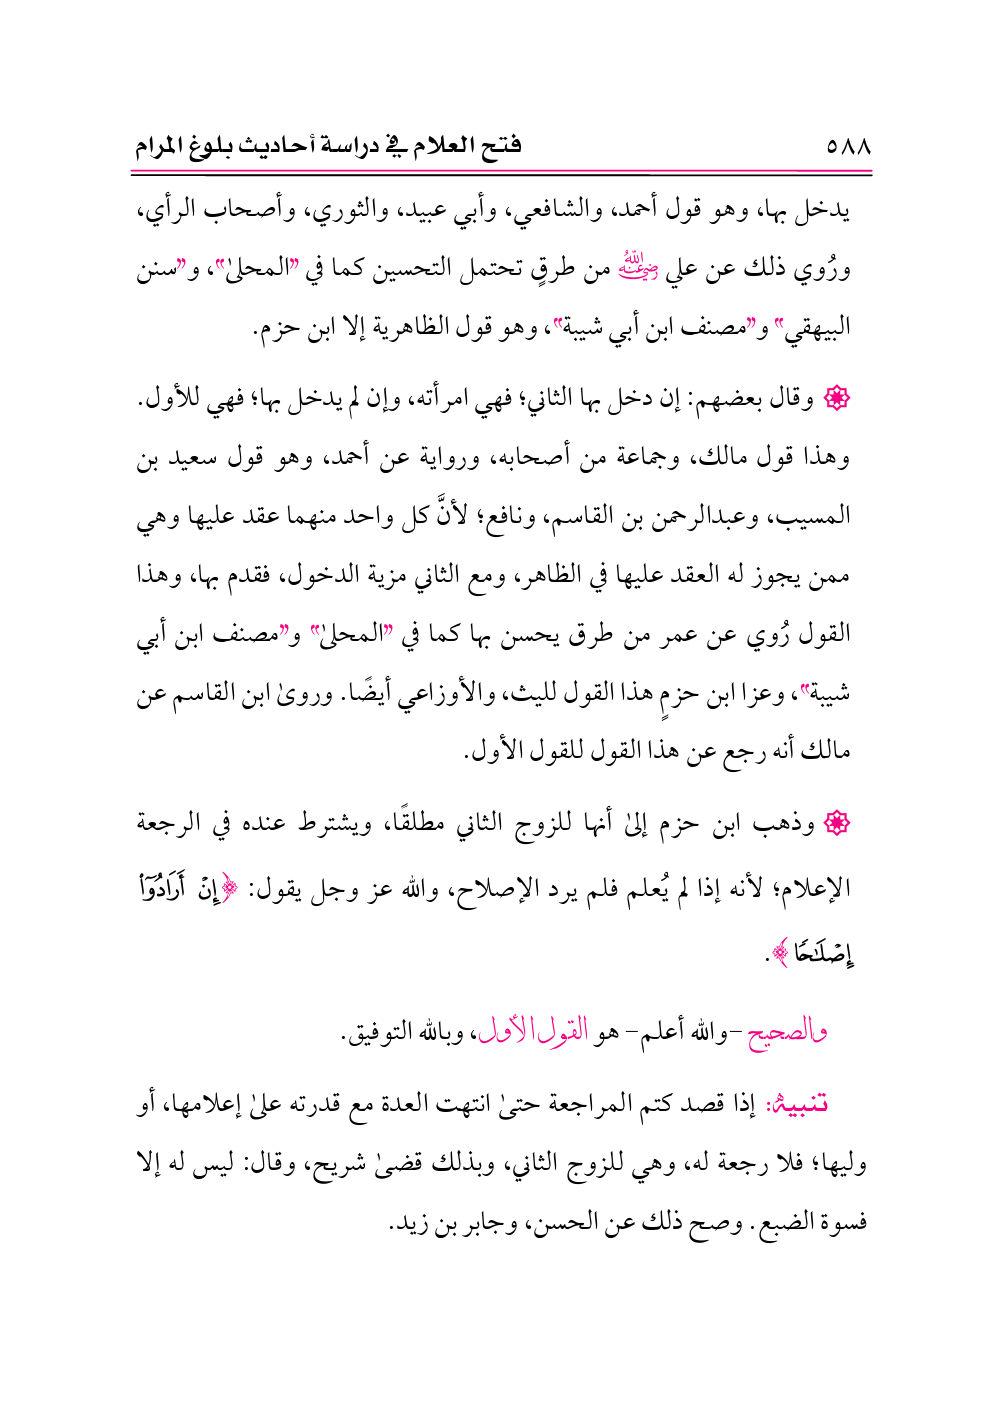 ٥٨٨ فتح العلام في دراسة أحاديث بلوغ المرام
يدخل بها، وهو قول أحمد، والشافعي، وأبي عبيد، والثوري، وأصحاب الرأي،
ورُوي ذلك عن علي رضي الله عنه من طرقٍ تحتمل التحسين كما في "المحلىٰ"، و"سنن
البيهقي" و"مصنف ابن أبي شيبة"، وهو قول الظاهرية إلا ابن حزم.
وقال بعضهم: إن دخل بها الثاني؛ فهي امرأته، وإن لم يدخل بها؛ فهي للأول.
وهذا قول مالك، وجماعة من أصحابه، ورواية عن أحمد، وهو قول سعيد بن
المسيب، وعبدالرحمن بن القاسم، ونافع؛ لأنَّ كل واحد منهما عقد عليها وهي
ممن يجوز له العقد عليها في الظاهر، ومع الثاني مزية الدخول، فقدم بها، وهذا
القول رُوي عن عمر من طرق يحسن بها كما في "المحلىٰ" و"مصنف ابن أبي
شيبة"، وعزا ابن حزمٍ هذا القول لليث، والأوزاعي أيضًا. وروىٰ ابن القاسم عن
مالك أنه رجع عن هذا القول للقول الأول.
وذهب ابن حزم إلىٰ أنها للزوج الثاني مطلقًا، ويشترط عنده في الرجعة
الإعلام؛ لأنه إذا لم يُعلم فلم يرد الإصلاح، والله عز وجل يقول: ﴿إِنۡ أَرَادُوٓاْ
إِصۡلَٰحٗا﴾.
والصحيح -والله أعلم- هو القول الأول، وبالله التوفيق.
تنبيهٌ: إذا قصد كتم المراجعة حتىٰ انتهت العدة مع قدرته علىٰ إعلامها، أو
وليها؛ فلا رجعة له، وهي للزوج الثاني، وبذلك قضىٰ شريح، وقال: ليس له إلا
فسوة الضبع. وصح ذلك عن الحسن، وجابر بن زيد.